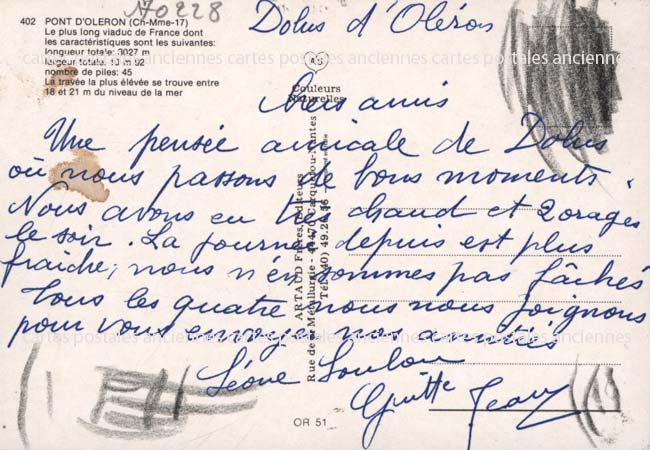 A0228
402 PONT D'OLERON (Ch-Mme-17)
Le plus long viaduc de France dont
les caractéristiques sont les suivantes:
longueur totale: 3027 m
largeur totale: 10 m 92
nombre de piles: 45
La travée la plus élévée se trouve entre
18 et 21 m du niveau de la mer
Dolus d'Oléron
AS
Couleurs
Naturelles
ARTAUD Frères, Éditeurs
Rue de la Métallurgie - 44470 Carquefou-Nantes
Mes amis
Une pensée amicale de Dolus
où nous passons de bons moments.
Nous avons eu très chaud et 2 orages
le soir. La journée depuis est plus
fraîche, nous n'en sommes pas fâchés
Tous les quatre nous nous joignons
pour vous envoyer nos amitiés
Léone Loulou
Guitte Jean
OR 51
cartes postales anciennes cartes postales anciennes
cartes postales anciennes cartes postales anciennes